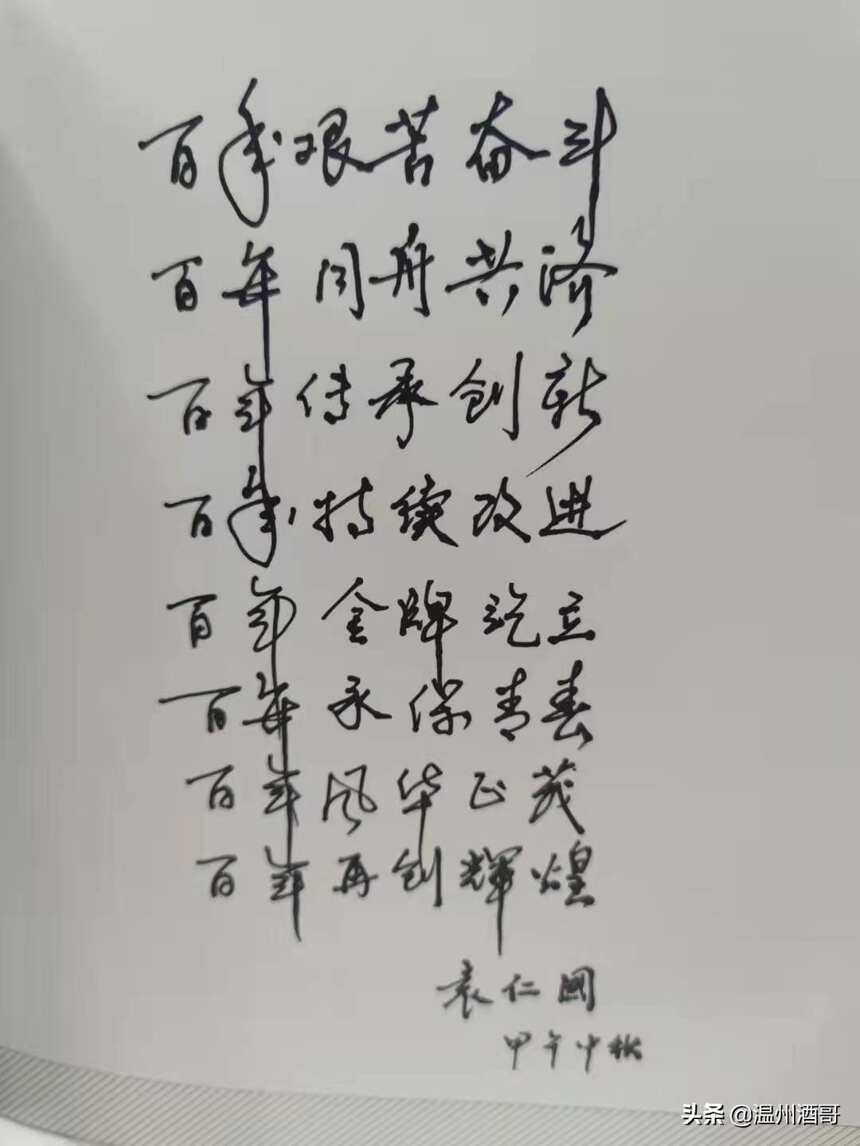 百年艰苦奋斗
百年同舟共济
百年传承创新
百年持续改进
百年金牌讫立
百年永保青春
百年风华正茂
百年再创輝煌
袁仁國
甲午中秋
头条 @温州酒哥